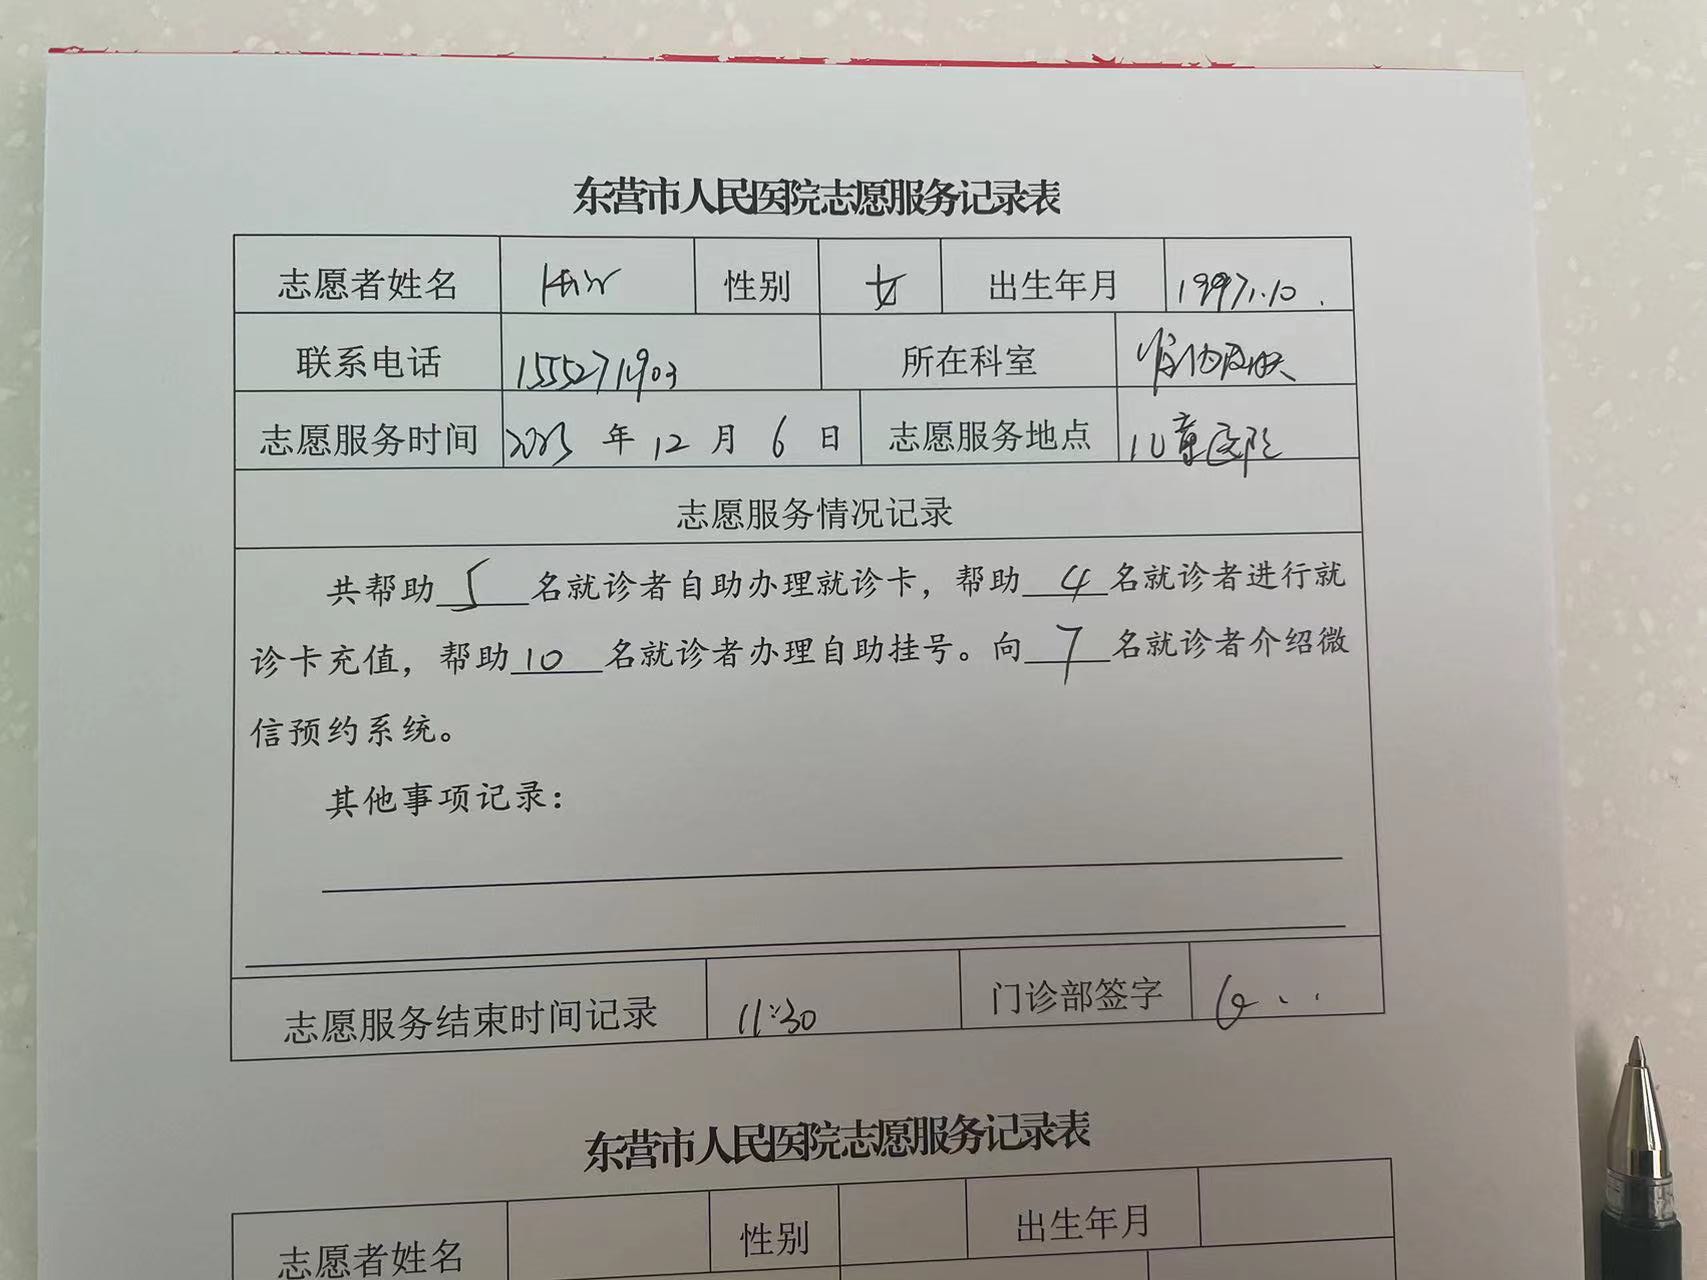 东营市人民医院志愿服务记录表
志愿者姓名 性别 女 出生年月 1997.10.
联系电话 所在科室
志愿服务时间 2023 年 12 月 6 日 志愿服务地点 儿童医院
志愿服务情况记录
共帮助 5 名就诊者自助办理就诊卡，帮助 4 名就诊者进行就
诊卡充值，帮助 10 名就诊者办理自助挂号。向 7 名就诊者介绍微
信预约系统。
其他事项记录：
志愿服务结束时间记录 11:30 门诊部签字
东营市人民医院志愿服务记录表
志愿者姓名 性别 出生年月